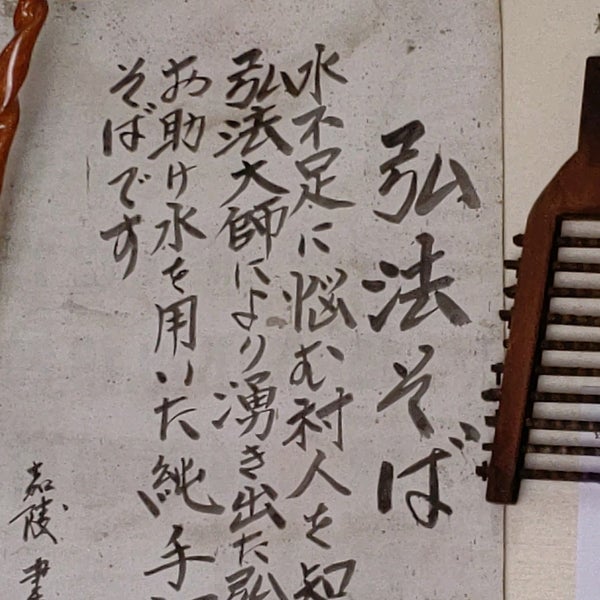 弘法そば
水不足に悩む村人を知
弘法大師により湧き出た弘
お助け水を用いた純手
そばです
嘉陵 書